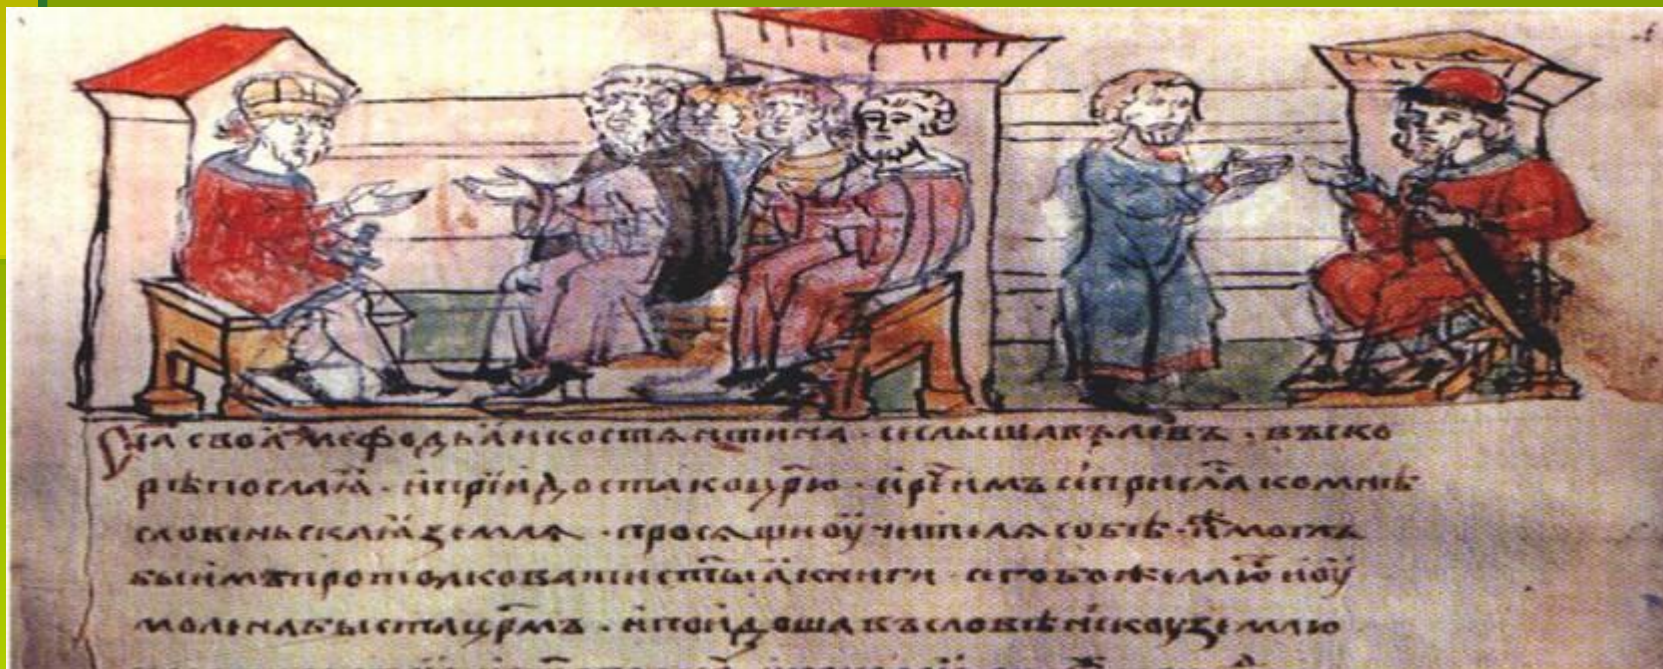 сн҃а своꙗ мефодьꙗ и костѧнтина · и слышавъ левъ · въско
рѣ посла ꙗ · и прїидоста ко цр҃ю · и рⷱ҇е имъ се присла ко мнѣ
словеньскаꙗ землѧ · просѧщи оучителѧ собѣ · моглъ
бы имъ протолковати ст҃ыꙗ книги · сего бо желаю и оу
молена быста цр҃мъ · и поидоша въ словѣньскоу землю